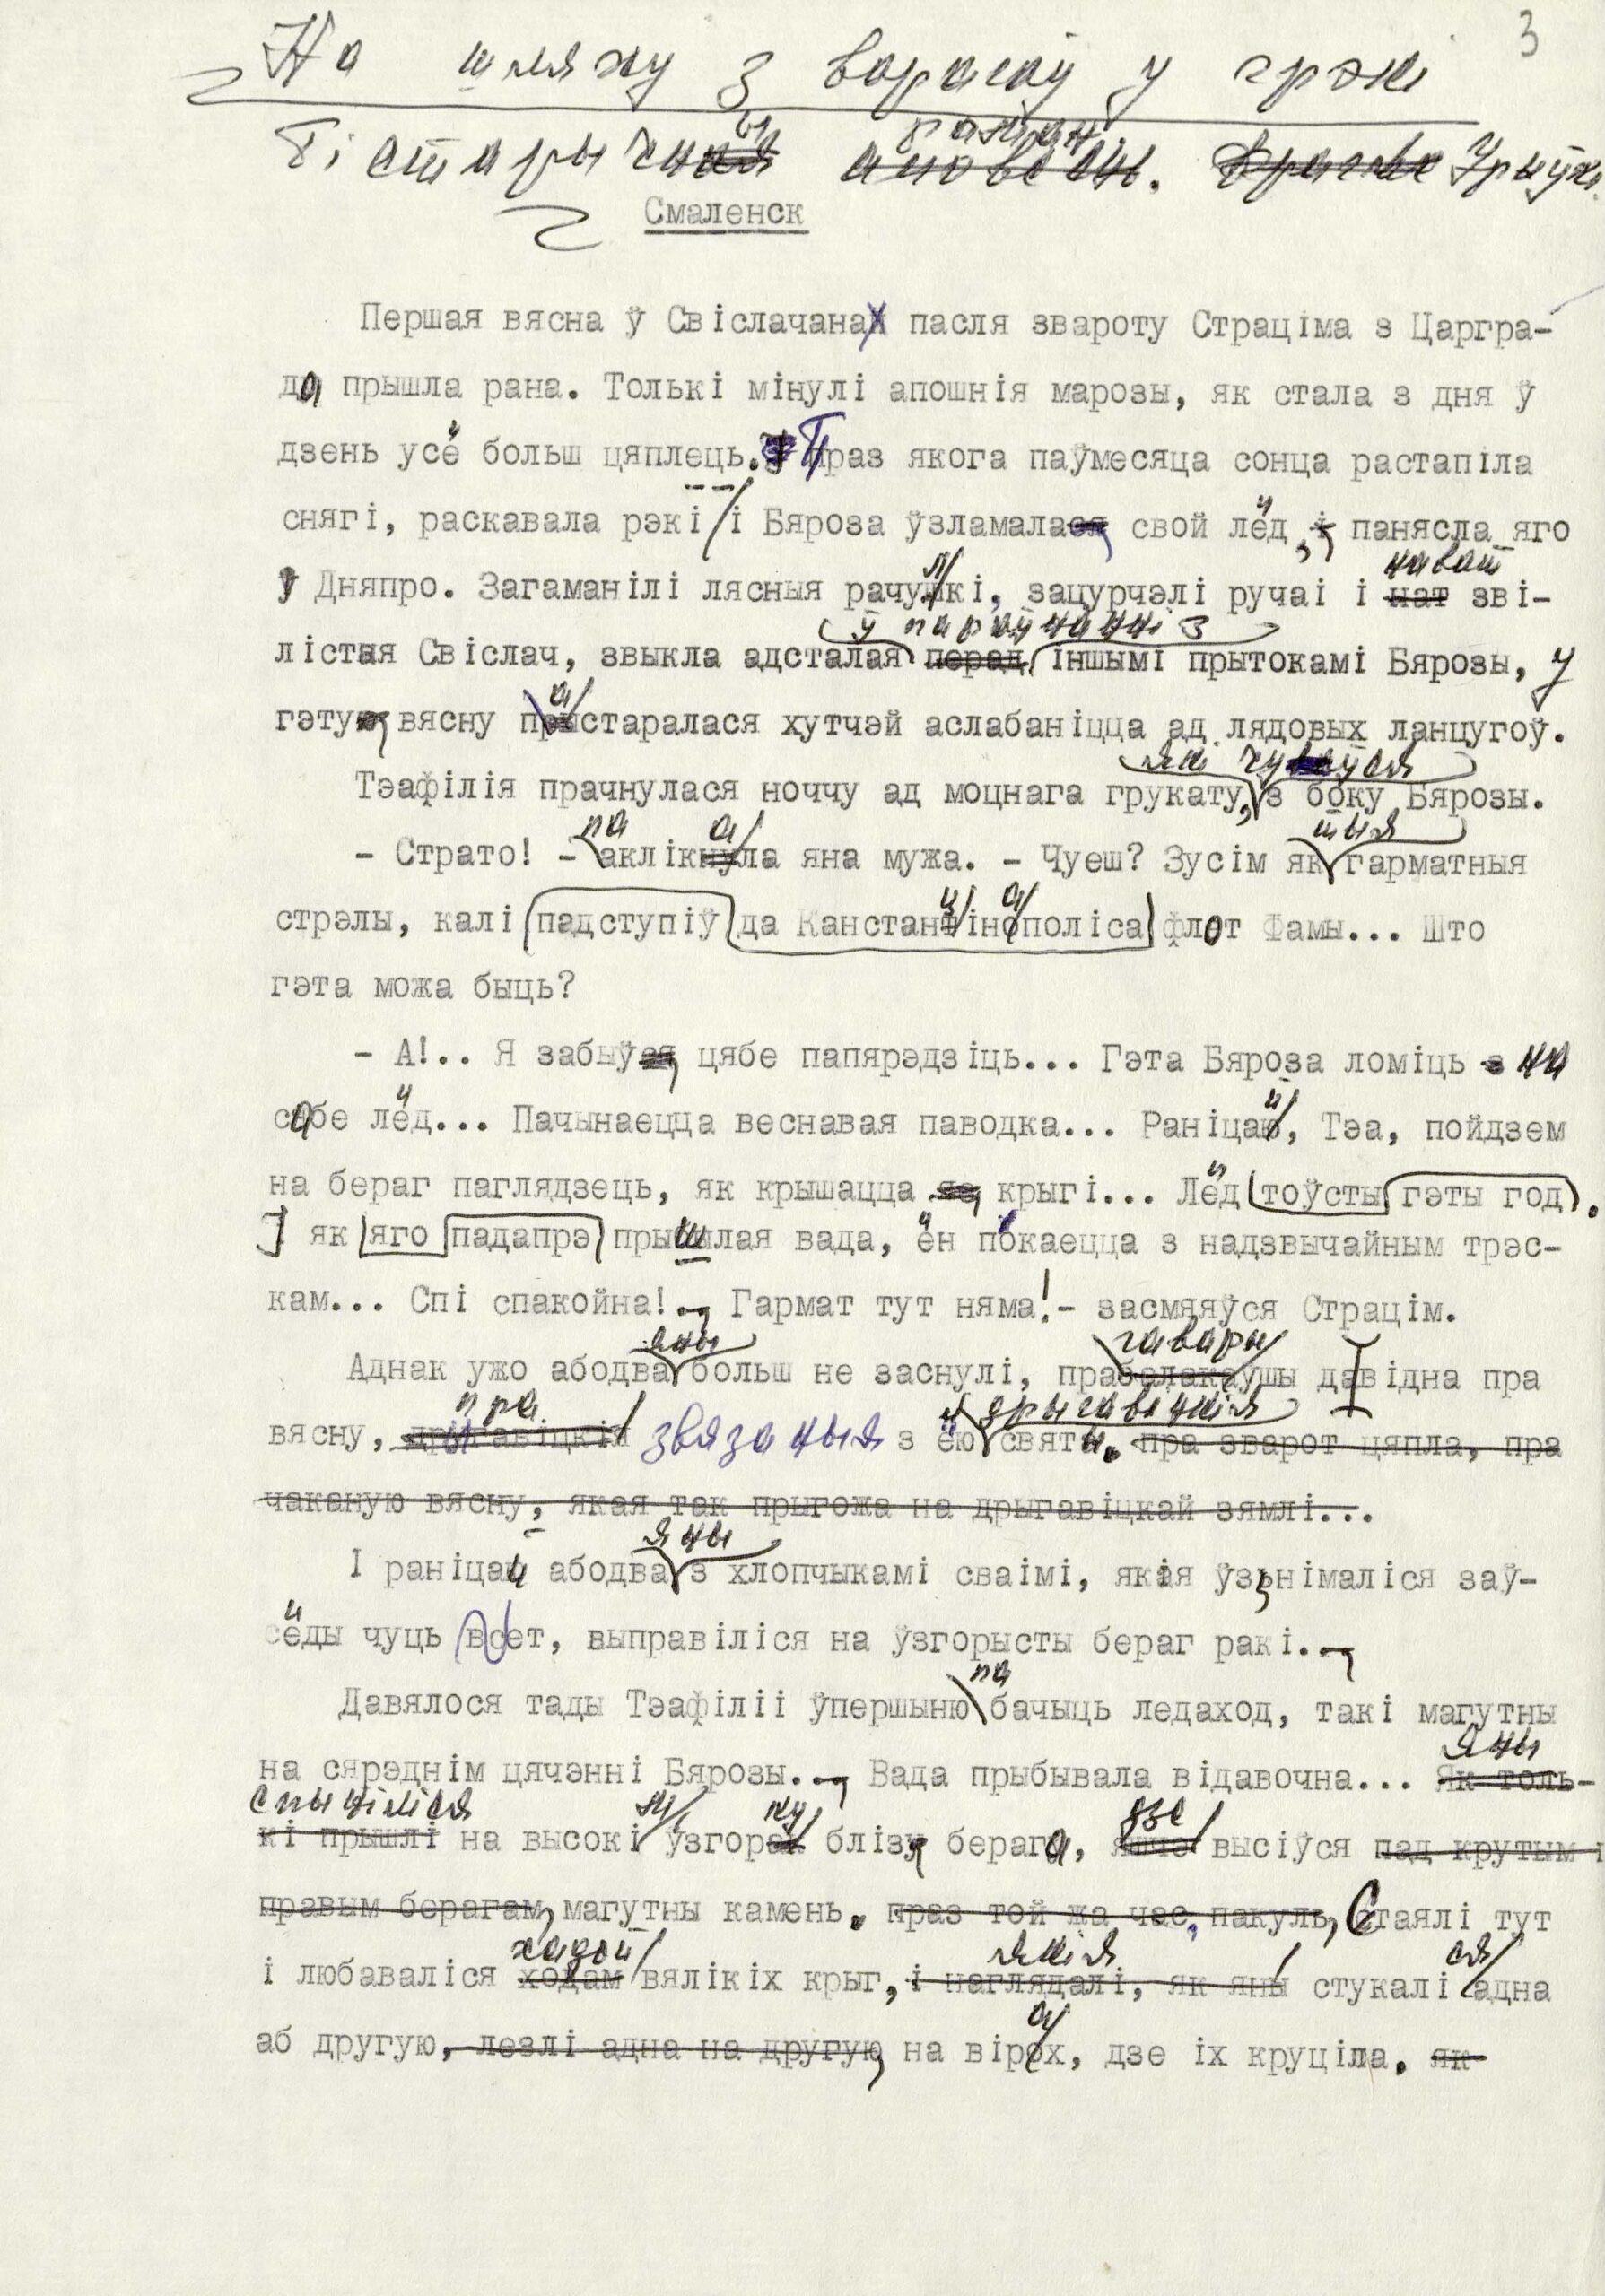 3
На шляху з варагаў у грэкі
Гістарычны раман. Урыўкі.
Смаленск
Першая вясна ў Свіслачанах пасля звароту Страціма з Царгра-
да прышла рана. Толькі мінулі апошнія марозы, як стала з дня ў
дзень усё больш цяплець. Праз якога паўмесяца сонца растапіла
снягі, раскавала рэкі і Бяроза ўзламала свой лёд, панясла яго
ў Дняпро. Загаманілі лясныя рачулкі, зацурчэлі ручаі і нават зві-
лістая Свіслач, звыкла адсталая ў параўнанні з іншымі прытокамі Бярозы, у
гэту вясну пастаралася хутчэй аслабаніцца ад лядовых ланцугоў.
Тэафілія прачнулася ноччу ад моцнага грукату, які чуўся з боку Бярозы.
- Страто! - пааклікала яна мужа. - Чуеш? Зусім як тыя гарматныя
стрэлы, калі падступіў да Канстанцінаполіса флот Фамы... Што
гэта можа быць?
- А!.. Я забыў цябе папярэдзіць... Гэта Бяроза ломіць на
сабе лёд... Пачынаецца веснавая паводка... Раніцай, Тэа, пойдзем
на бераг паглядзець, як крышацца крыгі... Лёд тоўсты гэты год.
І як яго падапрэ прышлая вада, ён покаецца з надзвычайным трэс-
кам... Спі спакойна! Гармат тут няма! - засмяяўся Страцім.
Аднак ужо абодва яны больш не заснулі, прагаварыўшы давідна пра
вясну, пра звязаныя з ёю дрыгавецкія святы. пра зварот цяпла, пра
чаканую вясну, якая так прыгожа на дрыгавіцкай зямлі...
І раніцай абодва яны з хлопчыкамі сваімі, якія ўзнімаліся заў-
сёды чуць свет, выправіліся на ўзгорысты бераг ракі.
Давялося тады Тэафіліі ўпершыню пабачыць ледаход, такі магутны
на сярэднім цячэнні Бярозы. Вада прыбывала відавочна... Яны Як толь-
спыніліся кі прышлі на высокім узгорку блізу берага, дзе высіўся пад крутым і
правым берагам, магутны камень. праз той жа час, пакуль, Стаялі тут
і любаваліся хадой вялікіх крыг, якія і наглядалі, як яны стукаліся адна
аб другую, лезлі адна на другую на вірах, дзе іх круціла. як